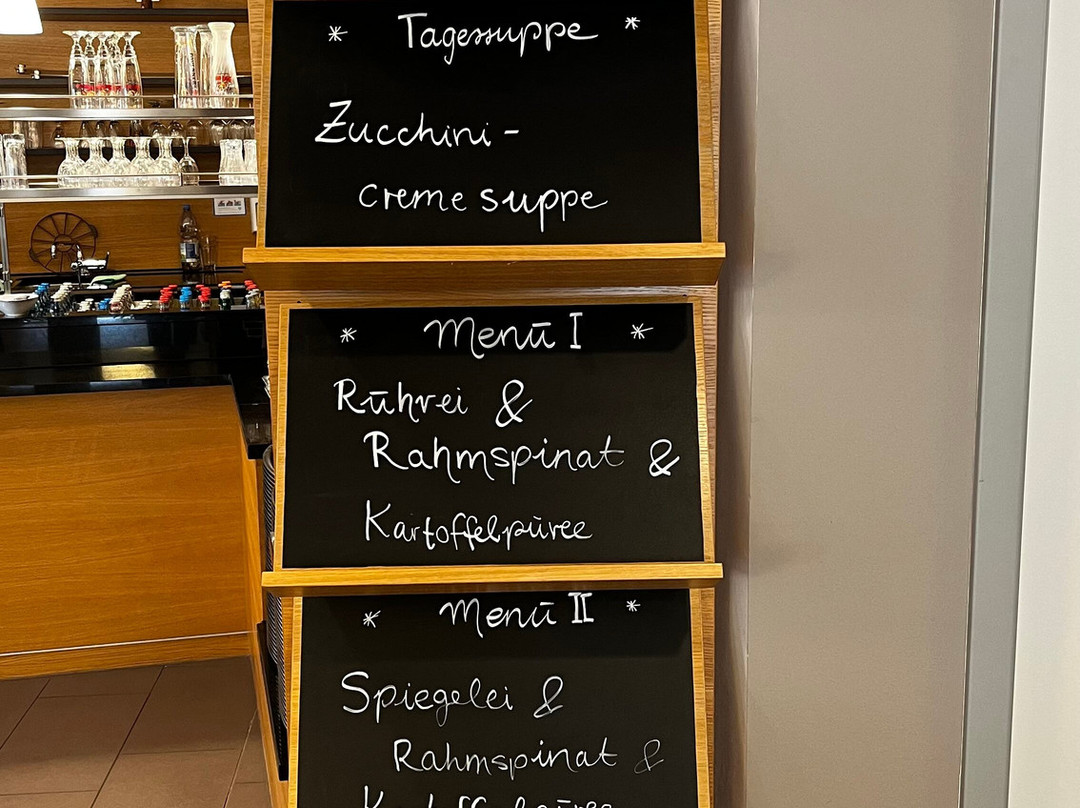 * Tagessuppe *
Zucchini-
cremesuppe
* Menü I *
Rührei &
Rahmspinat &
Kartoffelpüree
* Menü II *
Spiegelei &
Rahmspinat &